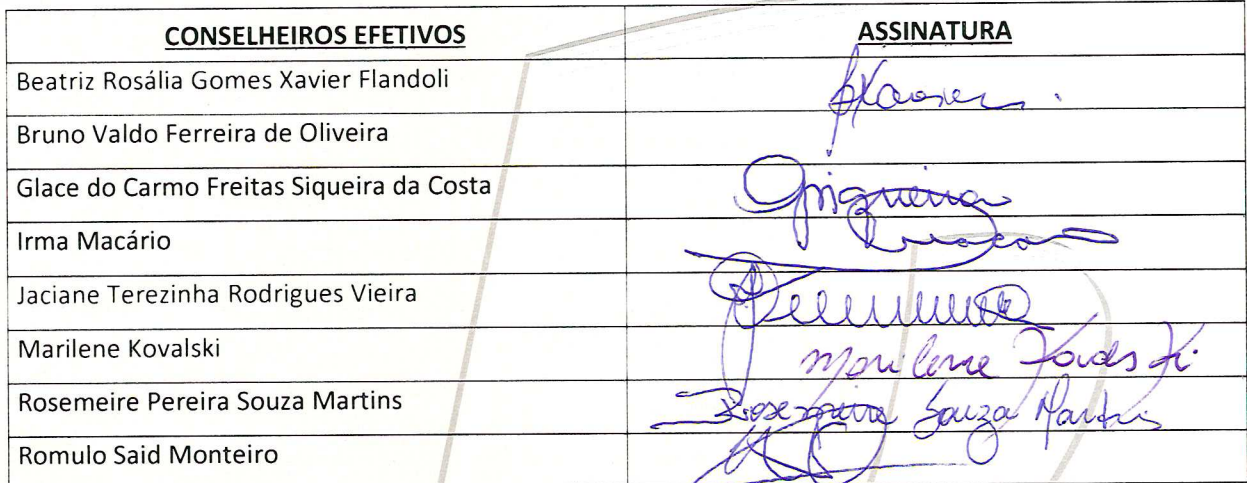 CONSELHEIROS EFETIVOS ASSINATURA
Beatriz Rosália Gomes Xavier Flandoli
Bruno Valdo Ferreira de Oliveira
Glace do Carmo Freitas Siqueira da Costa
Irma Macário
Jaciane Terezinha Rodrigues Vieira
Marilene Kovalski Marilene Kovalski
Rosemeire Pereira Souza Martins Rosemeire Souza Martins
Romulo Said Monteiro